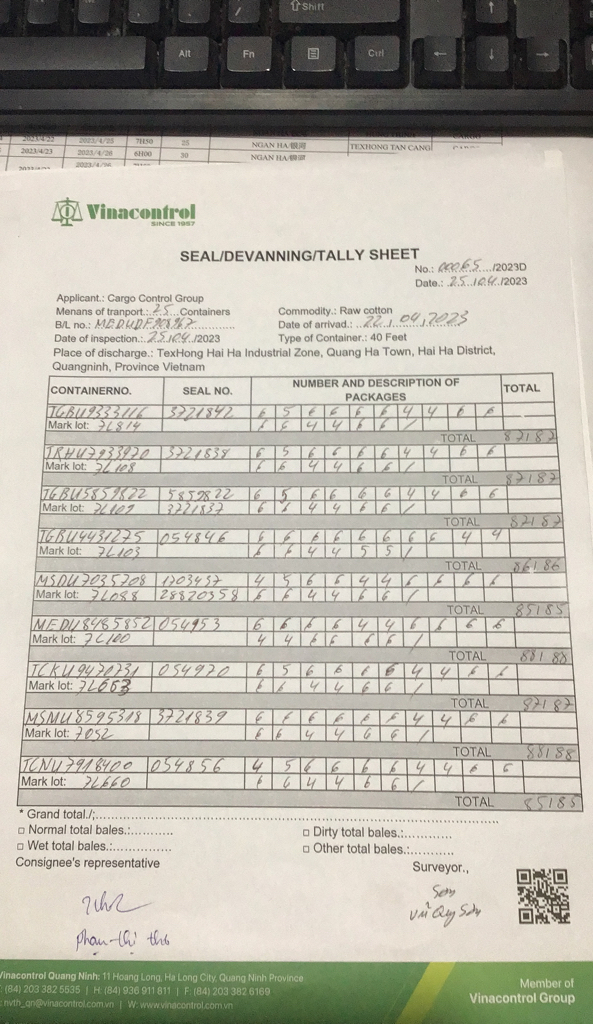 Shift
Alt
Fn
Ctrl
2023/4/22 2023/4/25 7H50 25 NGAN HA/银河
2023/4/23 2023/4/26 6H00 30 NGAN HA/银河 TEXHONG TAN CANG
Vinacontrol
SINCE 1957
SEAL/DEVANNING/TALLY SHEET
No.: 00065 /2023D
Date.: 25.04 /2023
Applicant.: Cargo Control Group
Menans of tranport.: 25 Containers
Commodity.: Raw cotton
B/L no.: MEDUDF908967
Date of arrivad.: 22, 04, 2023
Date of inspection.: 25.04 /2023
Type of Container.: 40 Feet
Place of discharge.: TexHong Hai Ha Industrial Zone, Quang Ha Town, Hai Ha District,
Quangninh, Province Vietnam
CONTAINERNO. SEAL NO. NUMBER AND DESCRIPTION OF PACKAGES TOTAL
TGBU9333116 3721842 6 5 6 6 6 6 4 4 6 6
Mark lot: 7L814 6 6 4 4 6 6 /
TOTAL 87187
3721838 6 5 6 6 6 6 4 4 6 6
Mark lot: 7L108 6 6 4 4 6 6 /
TOTAL 87187
TGBU5859822 5859822 6 5 6 6 6 6 4 4 6 6
Mark lot: 7L109 3721837 6 6 4 4 6 6 /
TOTAL 87187
TGBU4431275 054846 6 6 6 6 6 6 6 6 4 4
Mark lot: 7L103 6 6 4 4 5 5 /
TOTAL 86186
MSDU7035708 1703457 4 5 6 6 4 4 6 6 6 6
Mark lot: 7L088 28820358 6 6 4 4 6 6 /
TOTAL 85185
MEDU8485852 054953 6 6 6 6 4 4 6 6 6 6
Mark lot: 7L100 4 4 6 6 6 6 /
TOTAL 88188
TCKU9470731 054970 6 5 6 6 6 6 4 4 6 6
Mark lot: 7L663 6 6 4 4 6 6 /
TOTAL 87187
MSMU8595318 3721839 6 6 6 6 6 6 4 4 6 6
Mark lot: 7052 6 6 4 4 6 6 /
TOTAL 88188
TCNU7918400 054856 4 5 6 6 6 6 4 4 6 6
Mark lot: 7L660 6 6 4 4 6 6 /
TOTAL 85185
* Grand total./;
□ Normal total bales.:
□ Dirty total bales.:
□ Wet total bales.:
□ Other total bales.:
Consignee's representative
Surveyor.,
Sơn
Vũ Quý Sơn
phạm thị thơ
Vinacontrol Quang Ninh: 11 Hoang Long, Ha Long City, Quang Ninh Province
(84) 203 382 5535 | H: (84) 936 911 811 | F: (84) 203 382 6169
nvth_qn@vinacontrol.com.vn | W: www.vinacontrol.com.vn
Member of
Vinacontrol Group